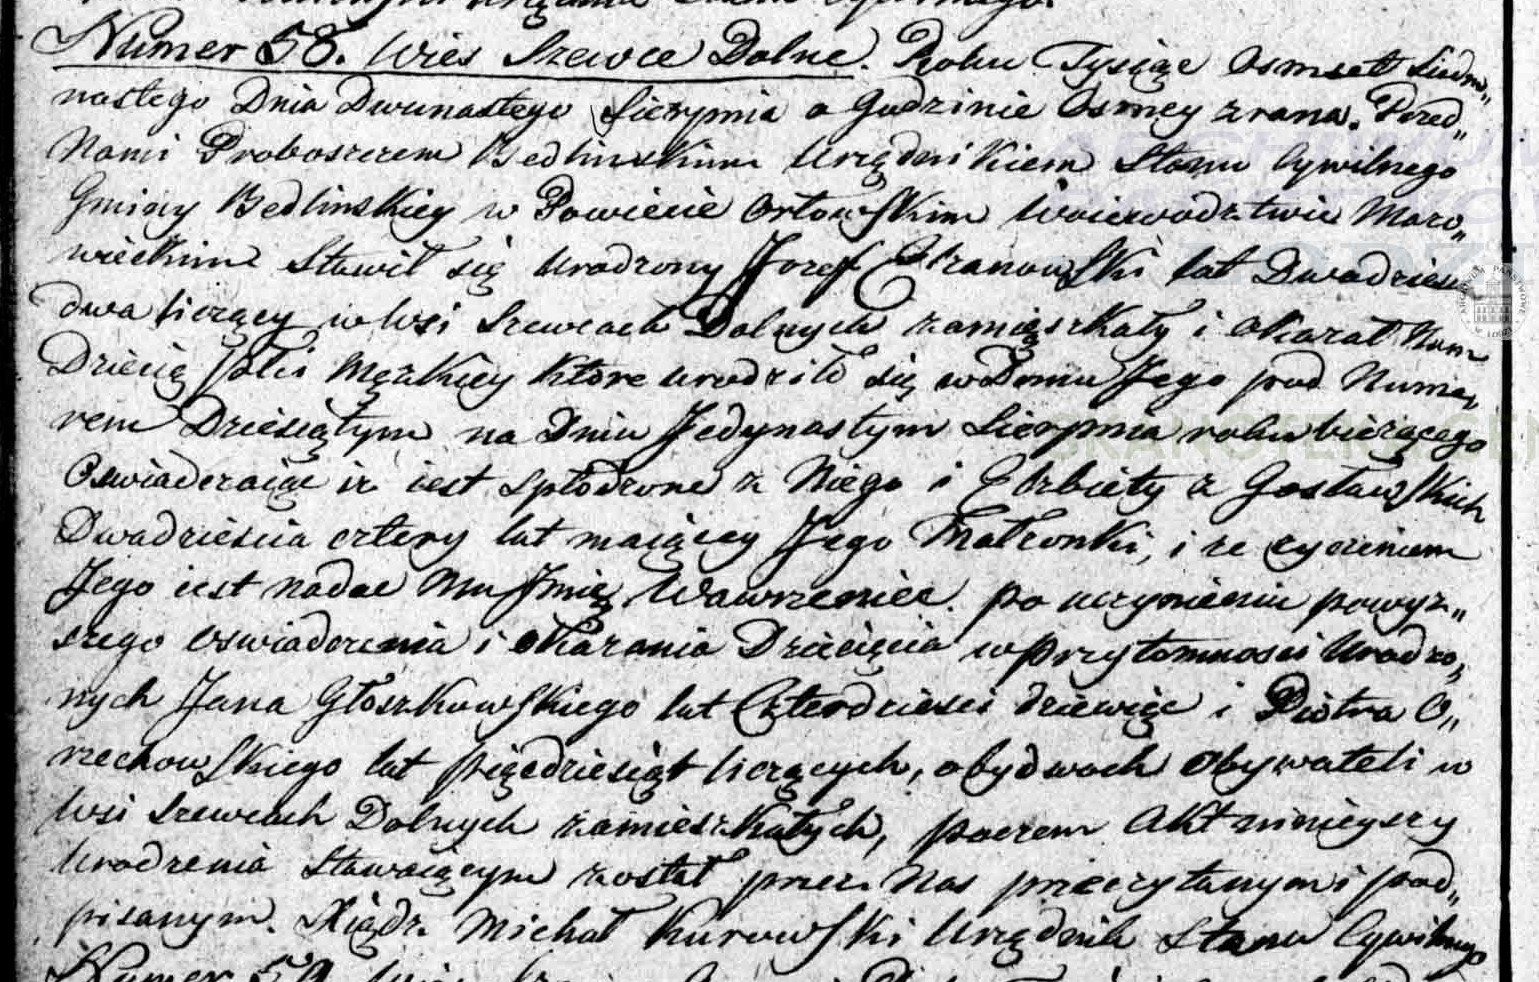 Numer 58. Wieś Szewce Dolne. Roku Tysiąc Osmset Siedm„
nastego Dnia Dwunastego Sierpnia o Godzinie Osmey z rana. Przed„
Nami Proboszczem Bedlinskim Urzędnikiem Stanu Cywilnego
Gminy Bedlinskiey w Powiecie Orłowskim Woiewodztwie Mazo„
wieckim Stawił się Urodzony Jozef Chranowski lat Dwadzieścia
dwa liczący w Wsi Szewcach Dolnych zamięszkały i okazał Nam
Dziecię płci Męzkiey które urodziło się w Domu Jego pod Nume„
rem Dziesiątym na Dniu Jedynastym Sierpnia roku bieżącego
Oswiadczaiąc iż iest spłodzone z Niego i Elzbiety z Gosławskich
Dwadzieścia cztery lat maiącey Jego Małzonki, i że życzeniem
Jego iest nadac Mu Imię Wawrzeniec. po uczynieniu powyż„
szego oswiadczenia i okazania Dziecięcia w przytomności Urodzo„
nych Jana Głoszkowskiego lat Czterdzieści dziewięć i Piotra O„
rzechowskiego lat pięćdziesiąt liczących, obydwoch Obywateli w
Wsi Szewcach Dolnych zamieszkałych, poczem Akt ninieyszy
Urodzenia Stawaiącym został przez Nas przeczytanym i pod„
pisanym. Xiądz. Michał Kurowski Urzędnik Stanu Cywilnego
Numer 59. Wieś